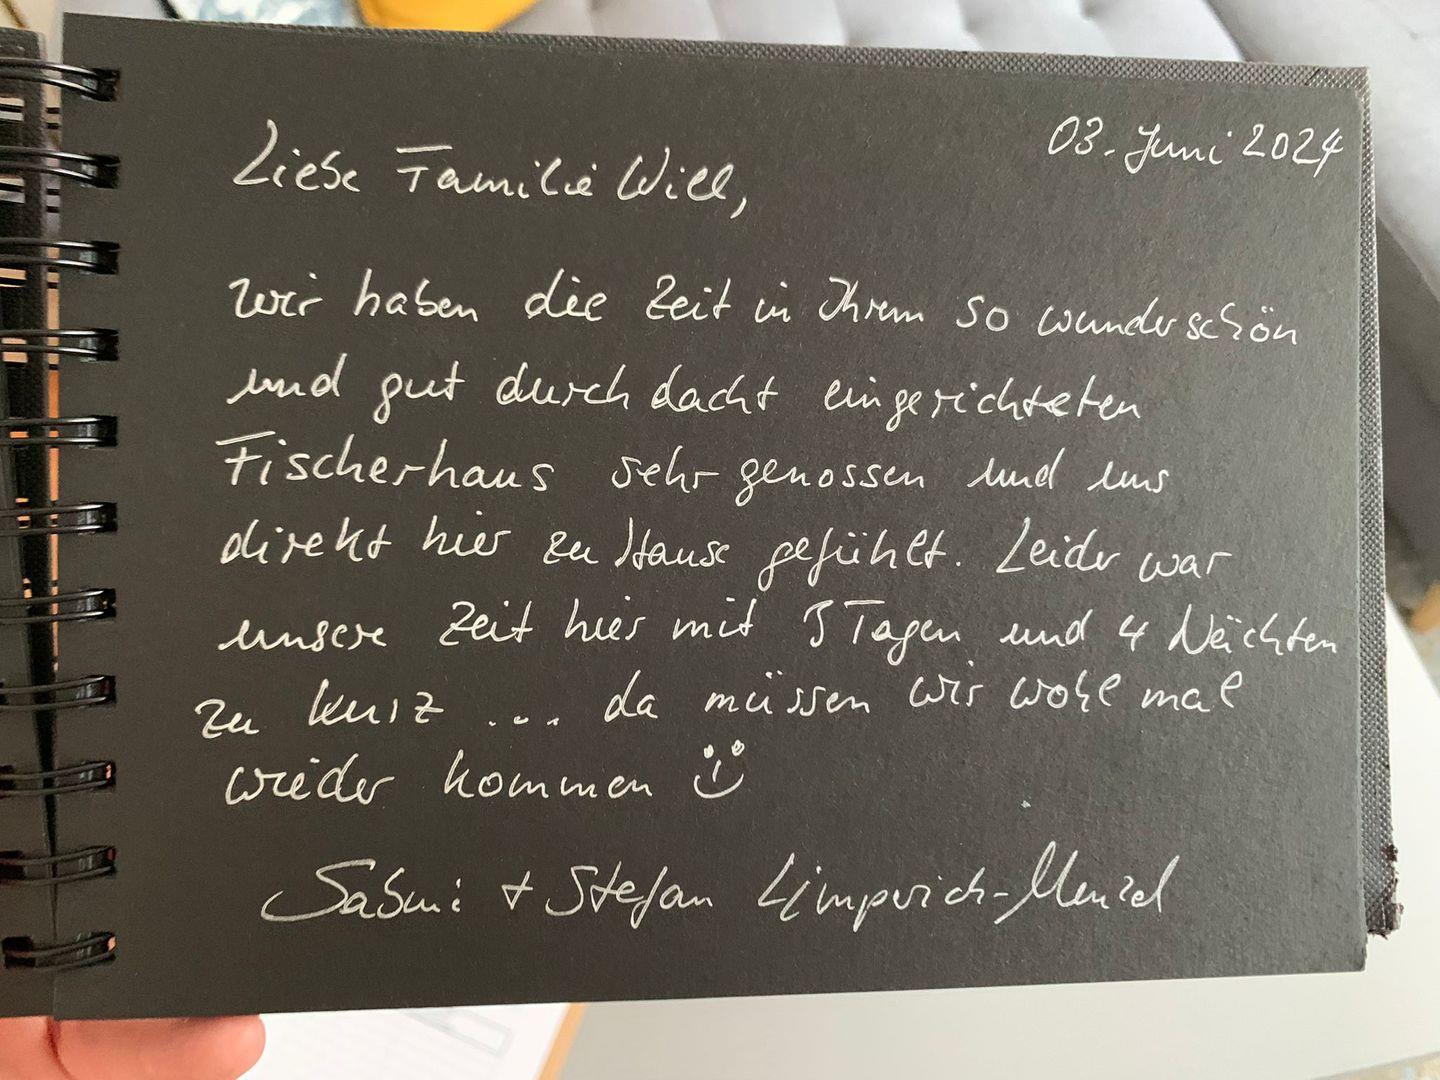 03. Juni 2024
Liebe Familie Will,
wir haben die Zeit in Ihrem so wunderschön
und gut durchdacht eingerichteten
Fischerhaus sehr genossen und uns
direkt hier zu Hause gefühlt. Leider war
unsere Zeit hier mit 3 Tagen und 4 Nächten
zu kurz ... da müssen wir wohl mal
wieder kommen
+ Stefan